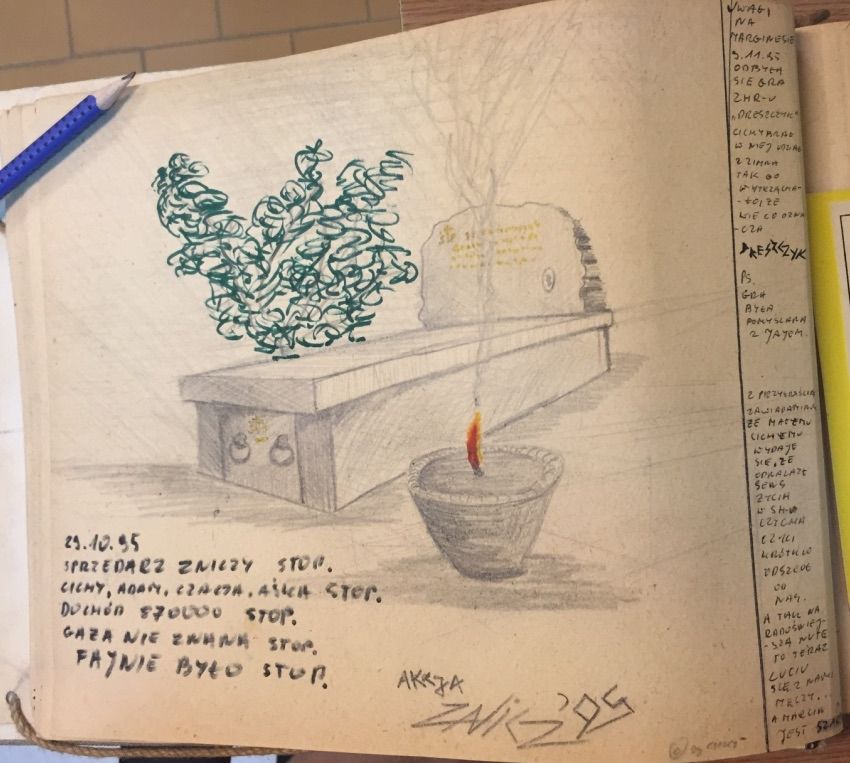 29.10.95
SPRZEDARZ ZNICZY STOP.
CICHY, ADAM, CZACZA, AŚKA STOP.
DOCHÓD 870000 STOP.
GAZA NIE ZNANA STOP.
FAJNIE BYŁO STOP.
AKCJA
ZNICZ '95
UWAGI
NA
MARGINESIE
9.11.95
ODBYŁA
SIĘ GRA
ZHR-U
"DRESZCZYK"
CICHY BRAŁ
W NIEJ UDZIAŁ
Z ZIMNA
TAK GO
WYTRZĄCHA-
-ŁO, ŻE
WIE CO OZNA
-CZA
DRESZCZYK
PS.
GRA
BYŁA
POMYSŁANA
Z JAJEM.
Z PRZYKROŚCIĄ
ZAWIADAMIAM
ŻE
CICHEMU
WYDAJE
SIĘ, ŻE
ODNALAZŁ
SENS
ŻYCIA
CZYLI
KRÓTKO
ODSZEDŁ
OD
NAS.
A TAK NA
RADOŚNIEJ-
-SZĄ NUTĘ
TO TERAZ
LUCIU
SIĘ Z NAMI
MĘCZY...
A MARCIN
JEST